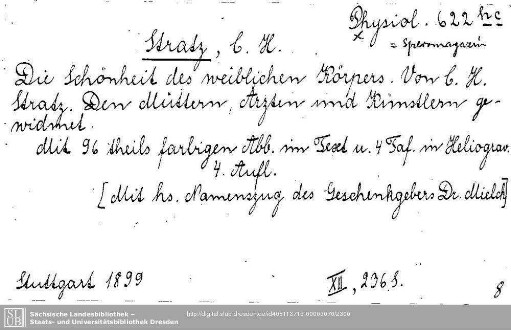 Physiol. 622 hc
x = Speermagazin
Stratz, C. H.
Die Schönheit des weiblichen Körpers. Von C. H.
Stratz. Den Müttern, Ärzten und Künstlern ge-
widmet.
Mit 96 theils farbigen Abb. im Text u. 4 Taf. in Heliograv.
4. Aufl.
[Mit hs. Namenszug des Geschenkgebers Dr. Mielck]
Stuttgart 1899 XII, 236 S. 8
Sächsische Landesbibliothek –
Staats- und Universitätsbibliothek Dresden